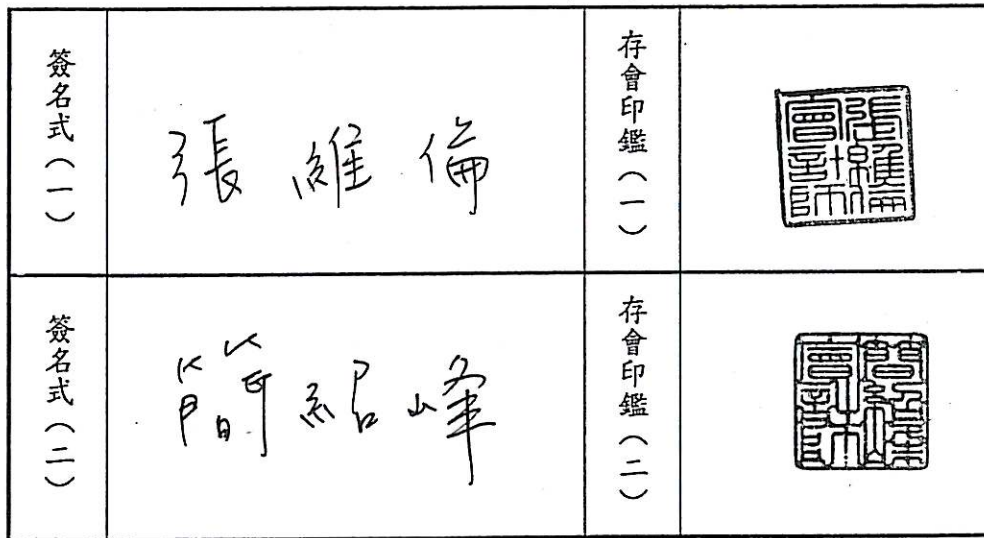 簽名式（一）
張維倫
存會印鑑（一）
張維倫會計師
簽名式（二）
簡紹峰
存會印鑑（二）